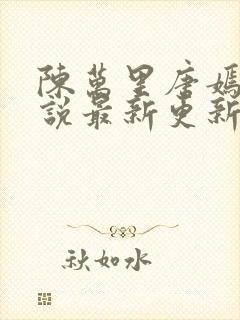 陳萬里唐嫣
說最新更新
秋如水